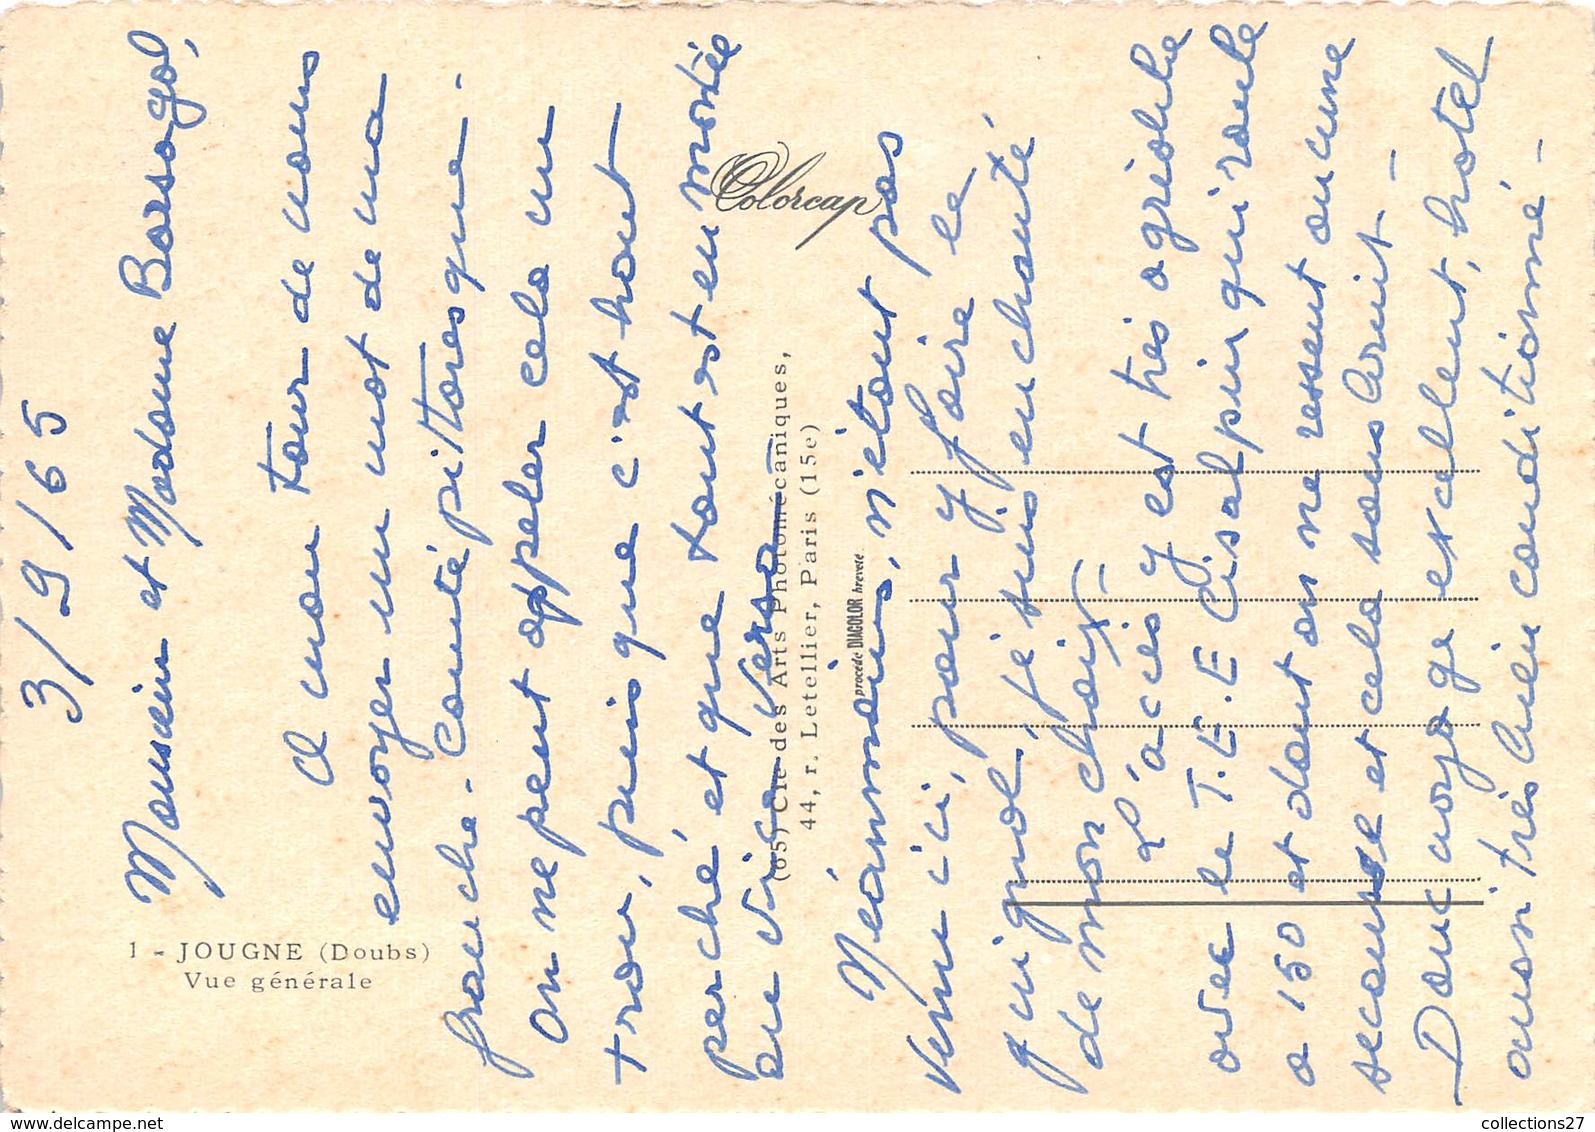 3/9/65
Monsieur et Madame Barsagol,
A mon tour de vous
envoyer un mot de ma
franche-Comté pittoresque.
On ne peut appeler cela un
trou, puisque c'est haut
perché, et que tout est en montée
ou vice versa
Néanmoins, n'étant pas
venu ici, pour y faire le
guignol, je suis enchanté
de mon choix -
L'accès y est très agréable
avec le T.E.E Cisalpin qui roule
a 150 et dont on ne ressent aucune
secousse et cela sans bruit -
Donc voyage excellent, hotel
aussi très bien conditionné -
1 - JOUGNE (Doubs)
Vue générale
Colorcap
(65) Cie des Arts Photomécaniques,
44, r. Letellier, Paris (15e)
procédé DIAGOLOR breveté
www.delcampe.net
collections27